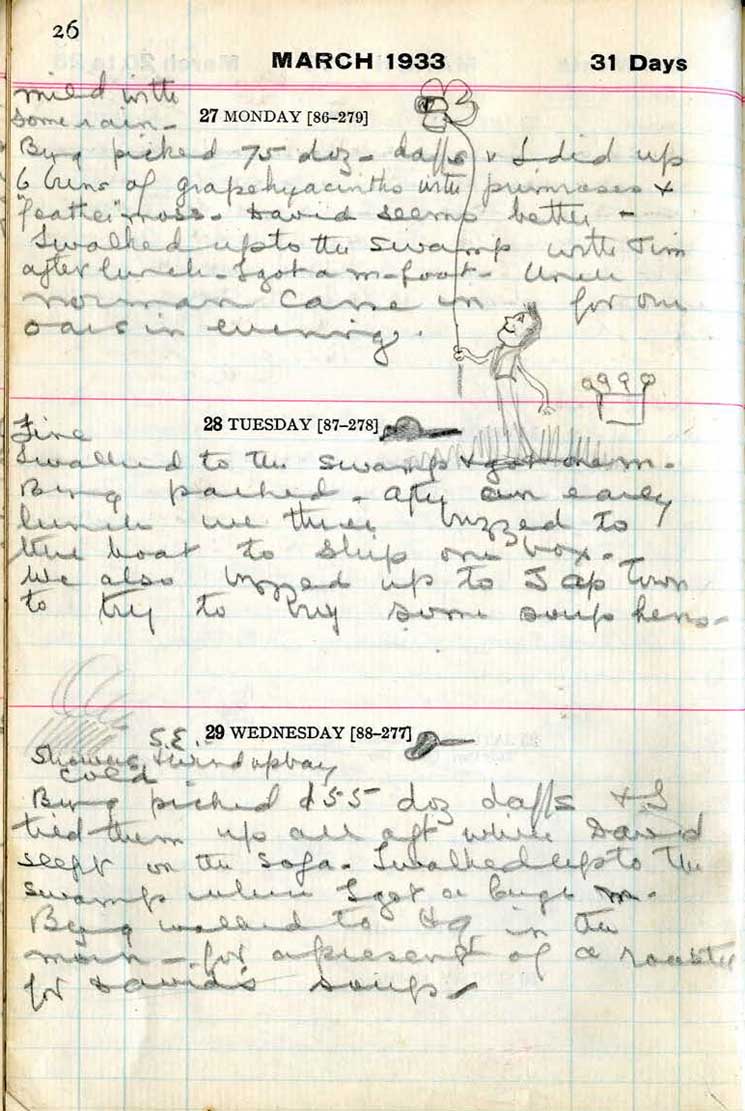 26
MARCH 1933 31 Days
mild with
some rain -
27 MONDAY [86–279]
Byng picked 75 doz - daffs & I did up
6 buns of grapehyacinths with primroses &
"feather" moss. David seems better -
I walked up to the swamp with Jim
after lunch - I got a m-foot - Uncle
Norman came in for our
oars in evening.
Fine
28 TUESDAY [87–278]
I walked to the swamp & got one m.
Byng packed - after an early
lunch we three buzzed to
the boat to ship one box -
We also buzzed up to Jap Town
to try to buy some soup hens -
29 WEDNESDAY [88–277]
S.E.
Showers, & wind up bay
cold
Byng picked 155 doz daffs & I
tied them up all aft while David
slept on the sofa. I walked up to the
swamp where I got a huge m.
Byng walked to in the
morn - for a present of a rooster
for David's soup -